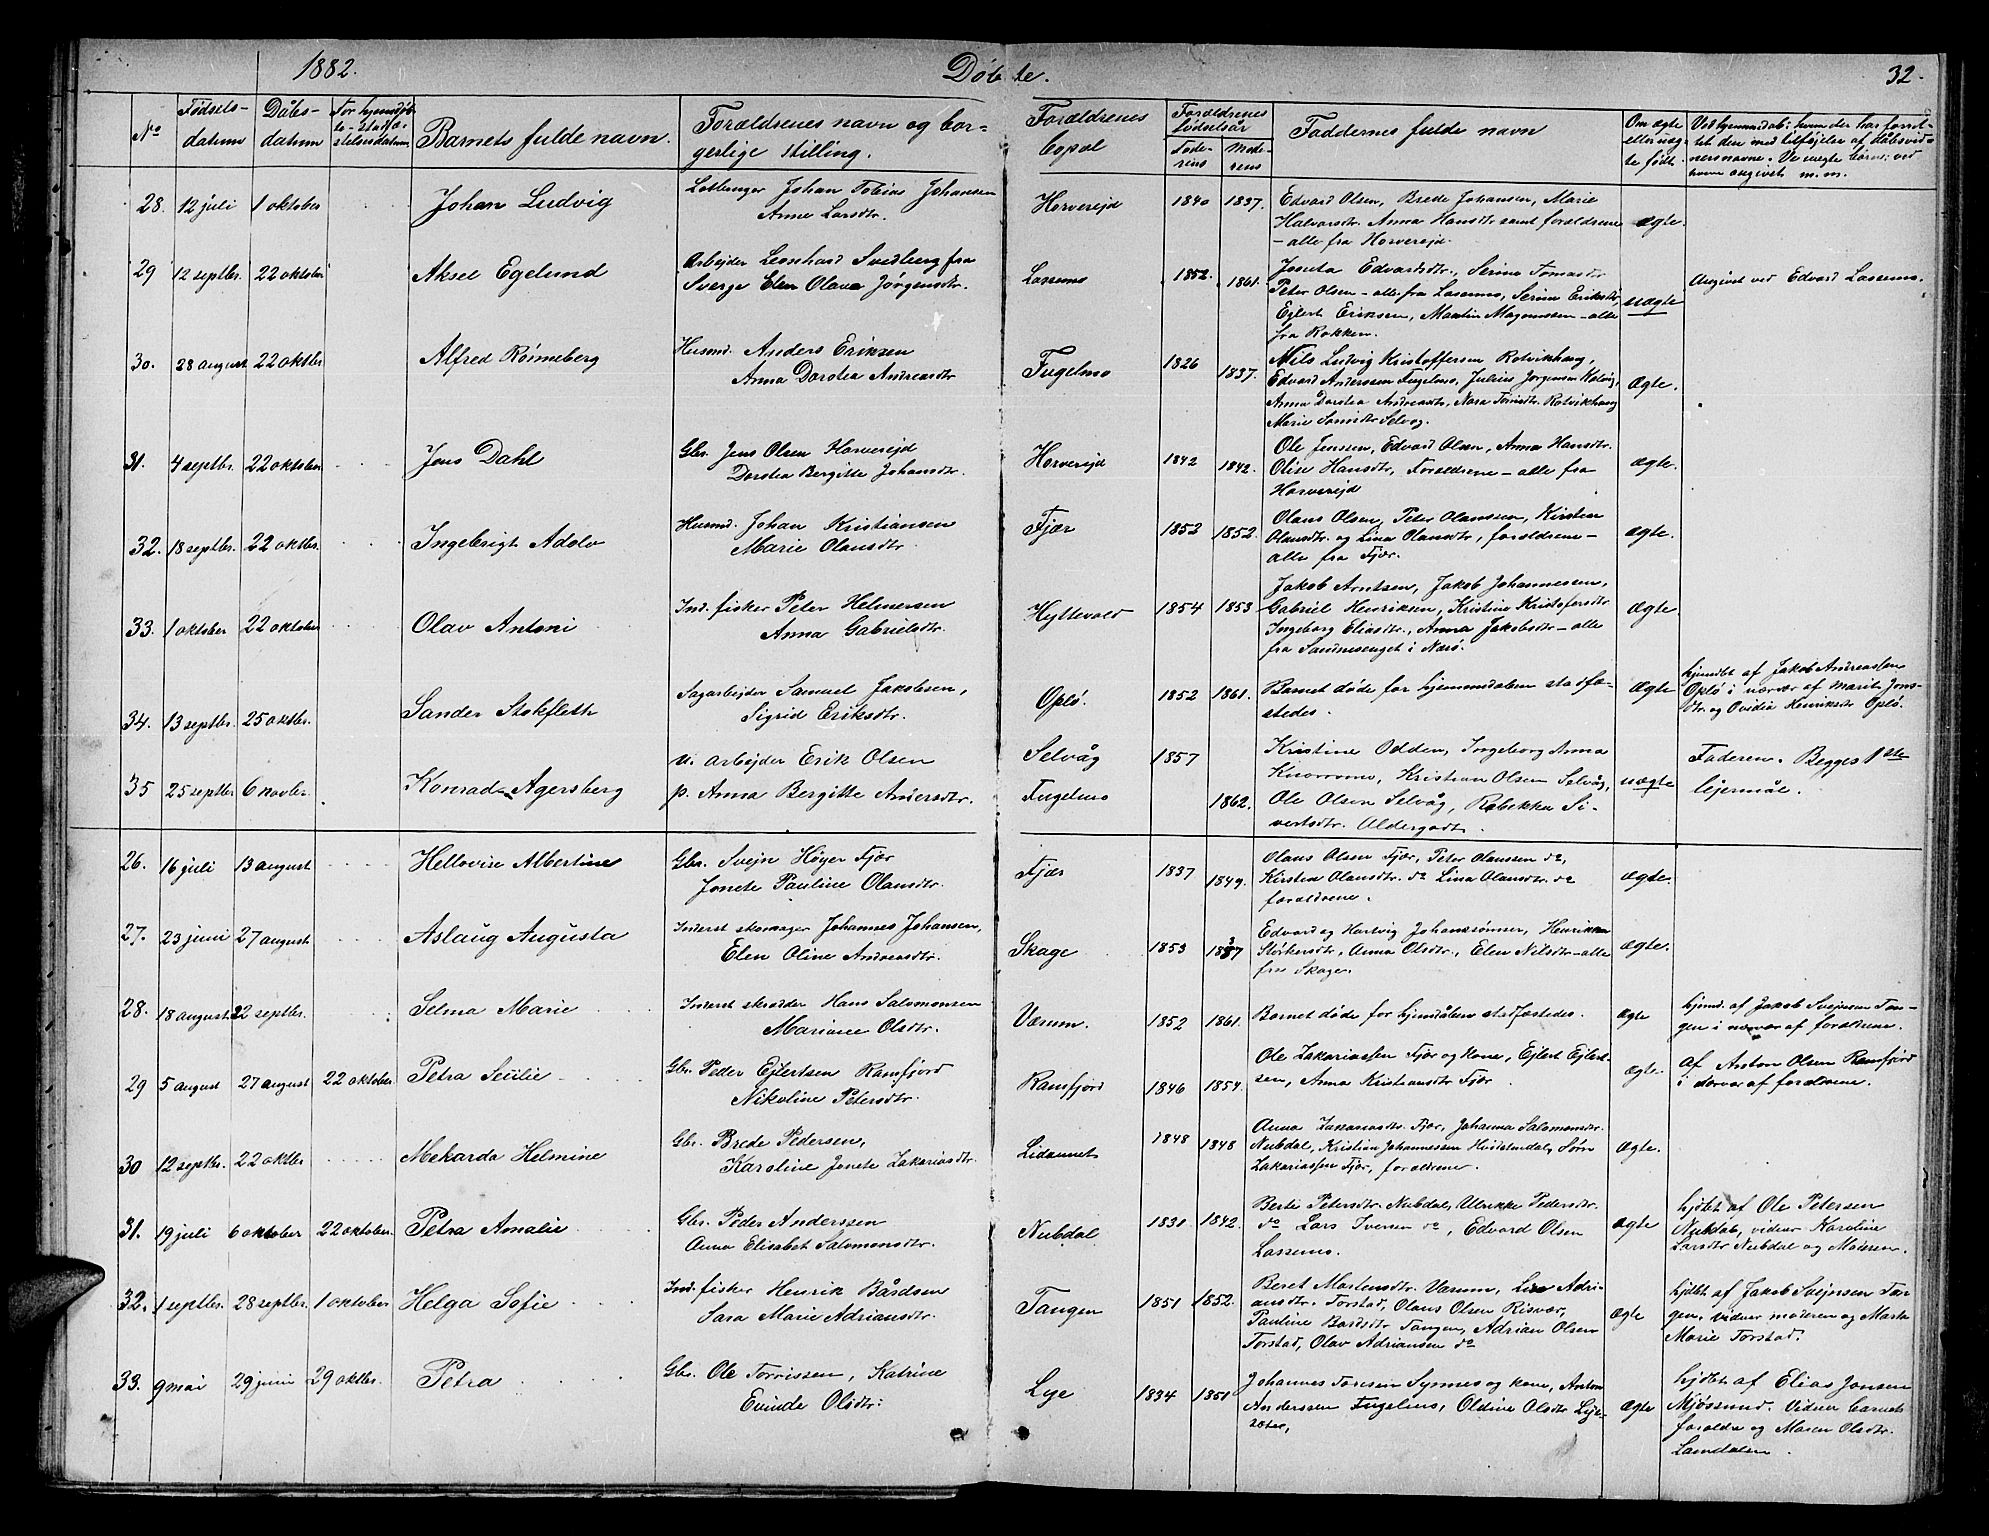 1882. Døbte. 32.
No Fødsels-datum Dåbs-datum For hjemdøbte - stadfæstelsesdatum Barnets fulde navn. Forældrenes navn og borgerlige stilling. Forældrenes bopæl Forældrenes fødselsår Faderens Moderens Faddernes fulde navn Om ægte eller uægte født
28. 12 juli 1 oktober Johan Ludvig
Johan Tobias Johansen
Anne Larsdtr.
Horvereid 1840 1837.
Edvard Olsen, Brede Johansen, Marie
Halvarsdtr. Anna Hansdtr samt forældrene
- alle fra Horvereid.
ægte.
29 12 septbr. 22 oktober Aksel Egelund
Arbejder Leonhard Svedberg fra
Sverge Elen Olava Jørgensdtr.
Lassemo 1852. 1861.
Josefa Edvardsdtr., Serina Tomasdtr
Peter Olsen - alle fra Lassemo, Serine Eriksdtr,
Ejlert Eriksen, Martin Magnussen - alle
fra Kokken.
uægte
Angivet ved Edvard Lassemo.
30. 28 august 22 oktbr Alfred Rønneberg
Husmd. Anders Eriksen
Anna Dorotea Andreasdtr
Fugelmo 1826 1837.
Nils Ludvig Kristoffersen Rotvikhaug,
Edvard Anderssen Fugelmo, Julius Jørgensen
Anna Dorotea Andreasdtr, Nora Rotvikhaug
Marie Selvåg.
Ægte.
31. 4 septbr. 22 oktober Jens Dahl
Gbr. Jens Olsen Horvereid
Dorotea Bergitte Johansdtr.
Horvereid 1842 1842.
Ole Jenssen, Edvard Olsen, Anna Hansdtr.
Olise Hansdtr, Forældrene - alle fra
Horvereid
ægte.
32. 18 septbr. 22 oktbr. Ingebrigt Adolv
Husmd. Johan Kristiansen
Marie Olausdtr.
Fjær 1852 1852.
Olaus Olsen, Peter Olaussen, Kirsten
Olausdtr. og Lina Olausdtr, forældrene -
alle fra Fjær.
ægte.
33. 1 oktober 22 oktober Olav Antoni
Ind. fisker Peter Helmersen
Anna Gabrielsdtr.
Hyllevold 1854 1853
Jakob Arntsen, Jakob Johannessen,
Gabriel Henriksen, Kristine Kristofersdtr
Ingeborg Eliasdtr., Anna Jakobsdtr - alle
fra Sandnesenget i Nærø.
ægte.
34. 13 septbr. 25 oktbr. Sander Stokfleth
Sagarbejder Samuel Jakobsen,
Sigrid Eriksdtr.
Oplø. 1852 1861.
Barnet døde før hjemmedåben stadfæ-
stedes.
ægte
hjemdbt af Jakob Andreassen
Oplø i nærvær af Marit Jons-
dtr. og Ovidia Henriksdtr Oplø.
35 25 septbr 6 novbr. Konrad Agersberg
u. arbejder Erik Olsen
p. Anna Bergitte Andersdtr.
Selvåg 1857
Fugelmo 1862.
Kristine Odden, Ingeborg Anna
Knorromo, Kristian Olsen Selvåg,
Ole Olsen Selvåg, Rebekka Si-
vertsdtr.
uægte
Faderen. Begges 1ste
lejermål.
26. 16 juli 13 august Hellovise Albertine
Gbr. Svejn Høyer Fjær
Jonete Pauline Olausdtr.
Fjær 1837 1849.
Olaus Olsen Fjær, Peter Olaussen do,
Kirsten Olausdtr. do Lina Olausdtr. do
forældrene.
ægte.
27. 23 juni 27 august Aslaug Augusta
Inderst skomager Johannes Johansen,
Elen Oline Andreasdtr.
Skage 1853 1837
Edvard og Hartvig Johanssønner, Henrikka
Størkersdtr., Anna Olsdtr., Elen Nilsdtr - alle
fra Skage.
ægte.
28. 18 august 22 septbr. Selma Marie
Inderst skrædder Hans Salomonsen
Mariane Olsdtr.
Værum. 1852 1861.
Barnet døde før hjemdåben stadfæstedes.
ægte
hjemd. af Jakob Svejnsen Tan-
gen i nærvær af forældrene.
29 5 august 27 august 22 oktober Petra Seülie
Gbr. Peder Ejlertsen Ramfjord
Nikoline Petersdtr.
Ramfjord 1846 1854.
Ole Zakariassen Fjær og kone, Ejlert Ejlert-
sen, Anna Kristiansdtr Fjær.
ægte.
af Anton Olsen Ramfjord
i nærvær af forældrene.
30 12 septbr. 22 oktbr Mekarda Helmine
Gbr. Brede Pedersen,
Karoline Jonete Zakariasdtr.
1848 1848
Anna Zakariasdtr. Fjær, Johanna Salomonsdtr.
Nubdal, Kristian Johannessen Søren
Zakariassen Fjær, forældrene.
Ægte.
31. 19 juli 6 oktober 22 oktober. Petra Amalie
Gbr. Peder Anderssen
Anna Elisabet Salomonsdtr.
Nubdal 1831 1842.
Berte Petersdtr. Nubdal, Ulrikke Pedersdtr.
do Lars Iversen do, Edvard Olsen
Lassemo.
ægte
hjdbt af Ole Petersen
Nubdal, vidner Karoline
Larsdtr Nubdal og Moderen.
32. 1 septbr. 28 septbr. 1 oktober Helga Sofie
Ind. fisker Henrik Bårdsen
Sara Marie Adriansdtr.
Tangen 1851 1852.
Beret Martensdtr. Værum, Lise Adri-
ansdtr. Torstad, Olaus Olsen Risvær,
Pauline Bårdsdtr Tangen, Adrian Olsen
Torstad, Olav Adriansen do
ægte
hjdbt af Jakob Svejnsen Tan-
gen, vidner moderen og Marta
Marie Torstad.
33. 9 mai 29 juni 29 oktbr. Petra
Gbr. Ole Torrissen, Katrine
Evinde Olsdtr.
Lye 1834 1851
Johannes Toresen Synnes og kone, Anton
Anderssen Fugelmo, Oldine Olsdtr Lyse-
ægte
hjdbt af Elias Jonsen
Mjøssund. Vidner barnets
forældre og Maren Olsdtr.